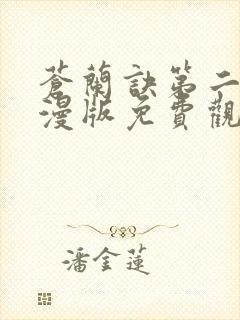 蒼蘭訣第二
漫版免費觀
潘金蓮